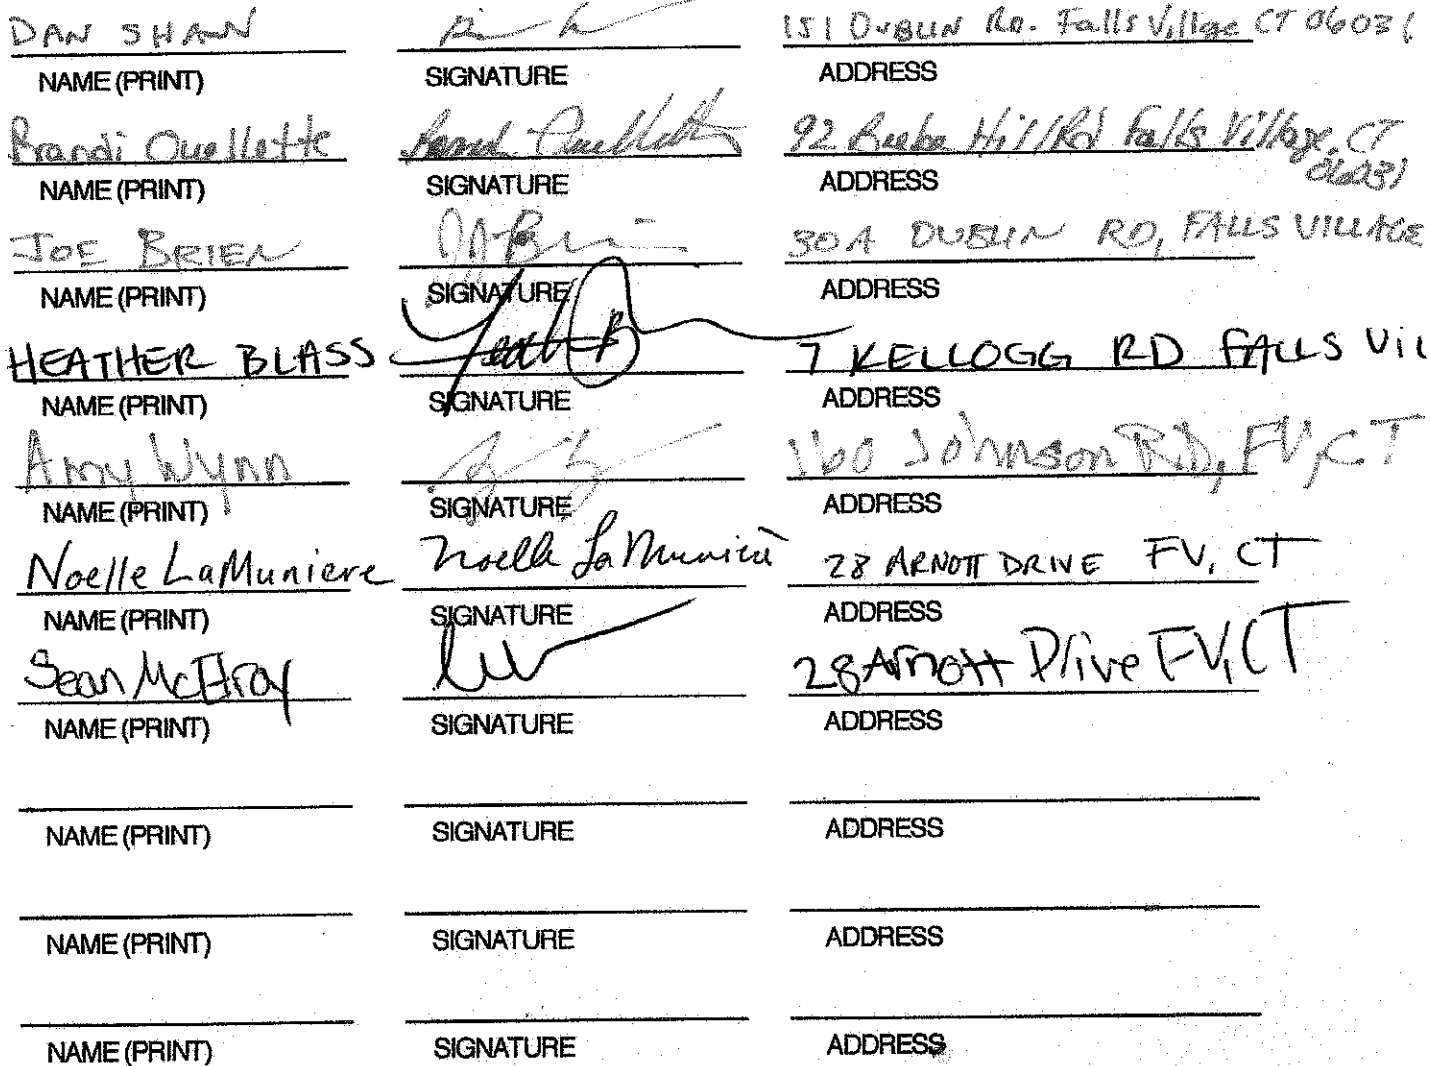 DAN SHAW 151 DUBLIN RD. Falls Village CT 06031
NAME (PRINT) SIGNATURE ADDRESS
Brandi Ouellette Brandi Ouellette 92 Beebe Hill Rd Falls Village, CT
06031
NAME (PRINT) SIGNATURE ADDRESS
JOE BRIEN JJ Bri 30A DUBLIN RD, FALLS VILLAGE
NAME (PRINT) SIGNATURE ADDRESS
HEATHER BLASS 7 KELLOGG RD FALLS VIL
NAME (PRINT) SIGNATURE ADDRESS
Amy Wynn 160 Johnson RD, FV, CT
NAME (PRINT) SIGNATURE ADDRESS
Noelle LaMuniere Noelle LaMuniere 28 ARNOTT DRIVE FV, CT
NAME (PRINT) SIGNATURE ADDRESS
Sean McElroy 28 Arnott Drive FV, CT
NAME (PRINT) SIGNATURE ADDRESS
NAME (PRINT) SIGNATURE ADDRESS
NAME (PRINT) SIGNATURE ADDRESS
NAME (PRINT) SIGNATURE ADDRESS